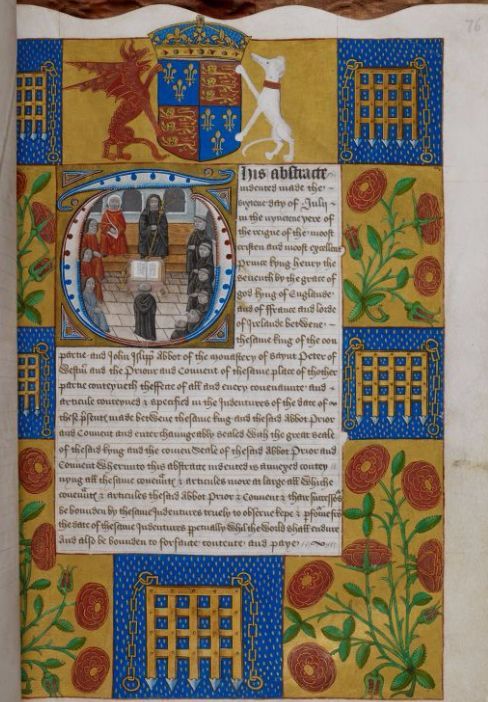 76
This abstracte
indented made the
sixtene day of July
in the nyntene yere of
the reigne of the moost
cristen and moost excellent
Prince kyng henry the
seventh by the grace of
god kyng of Englande
and of ffrance and lorde
of Irelande betwene
thesame king of the oon
partie and John Islipp abbot of the monastery of Saynt Peter of
Westm and the Priour and Convent of thesame place of thother
partie conteyneth theffecte of all and every covenaunte and
articule conteyned & specified in the Indentures of the date of
thes pñsents made betwene thesame king and thesaid Abbot Prior
and Convent and enterchaungeably sealed With the great seale
of thesaid kyng and the comen seale of thesaid Abbot Prior and
Convent Wherunto this abstract indented is annexed contey
nyng all thesame covennts & articules more at large all Whiche
covennts & articules thesaid Abbot Prior & Convent & their successors
be bounden by thesame Indentures truely to observe kepe & pfourme fro
the date of thesame Indentures ppetually Whil the World shall endure
And also be bounden to forfaite contente and paye